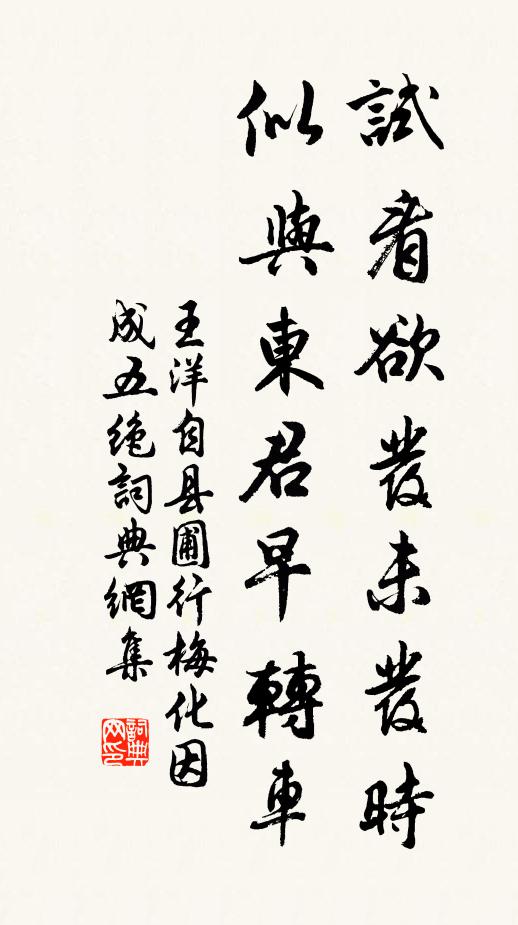 試看欲發未發時
似與東君早轉車
王洋自县圃行梅化因
成五绝詞典網集
詞典網印